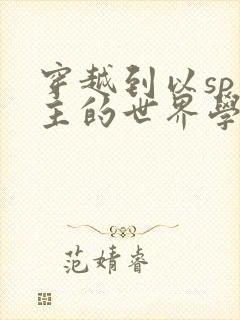 穿越到以sp
主的世界學
范婧睿